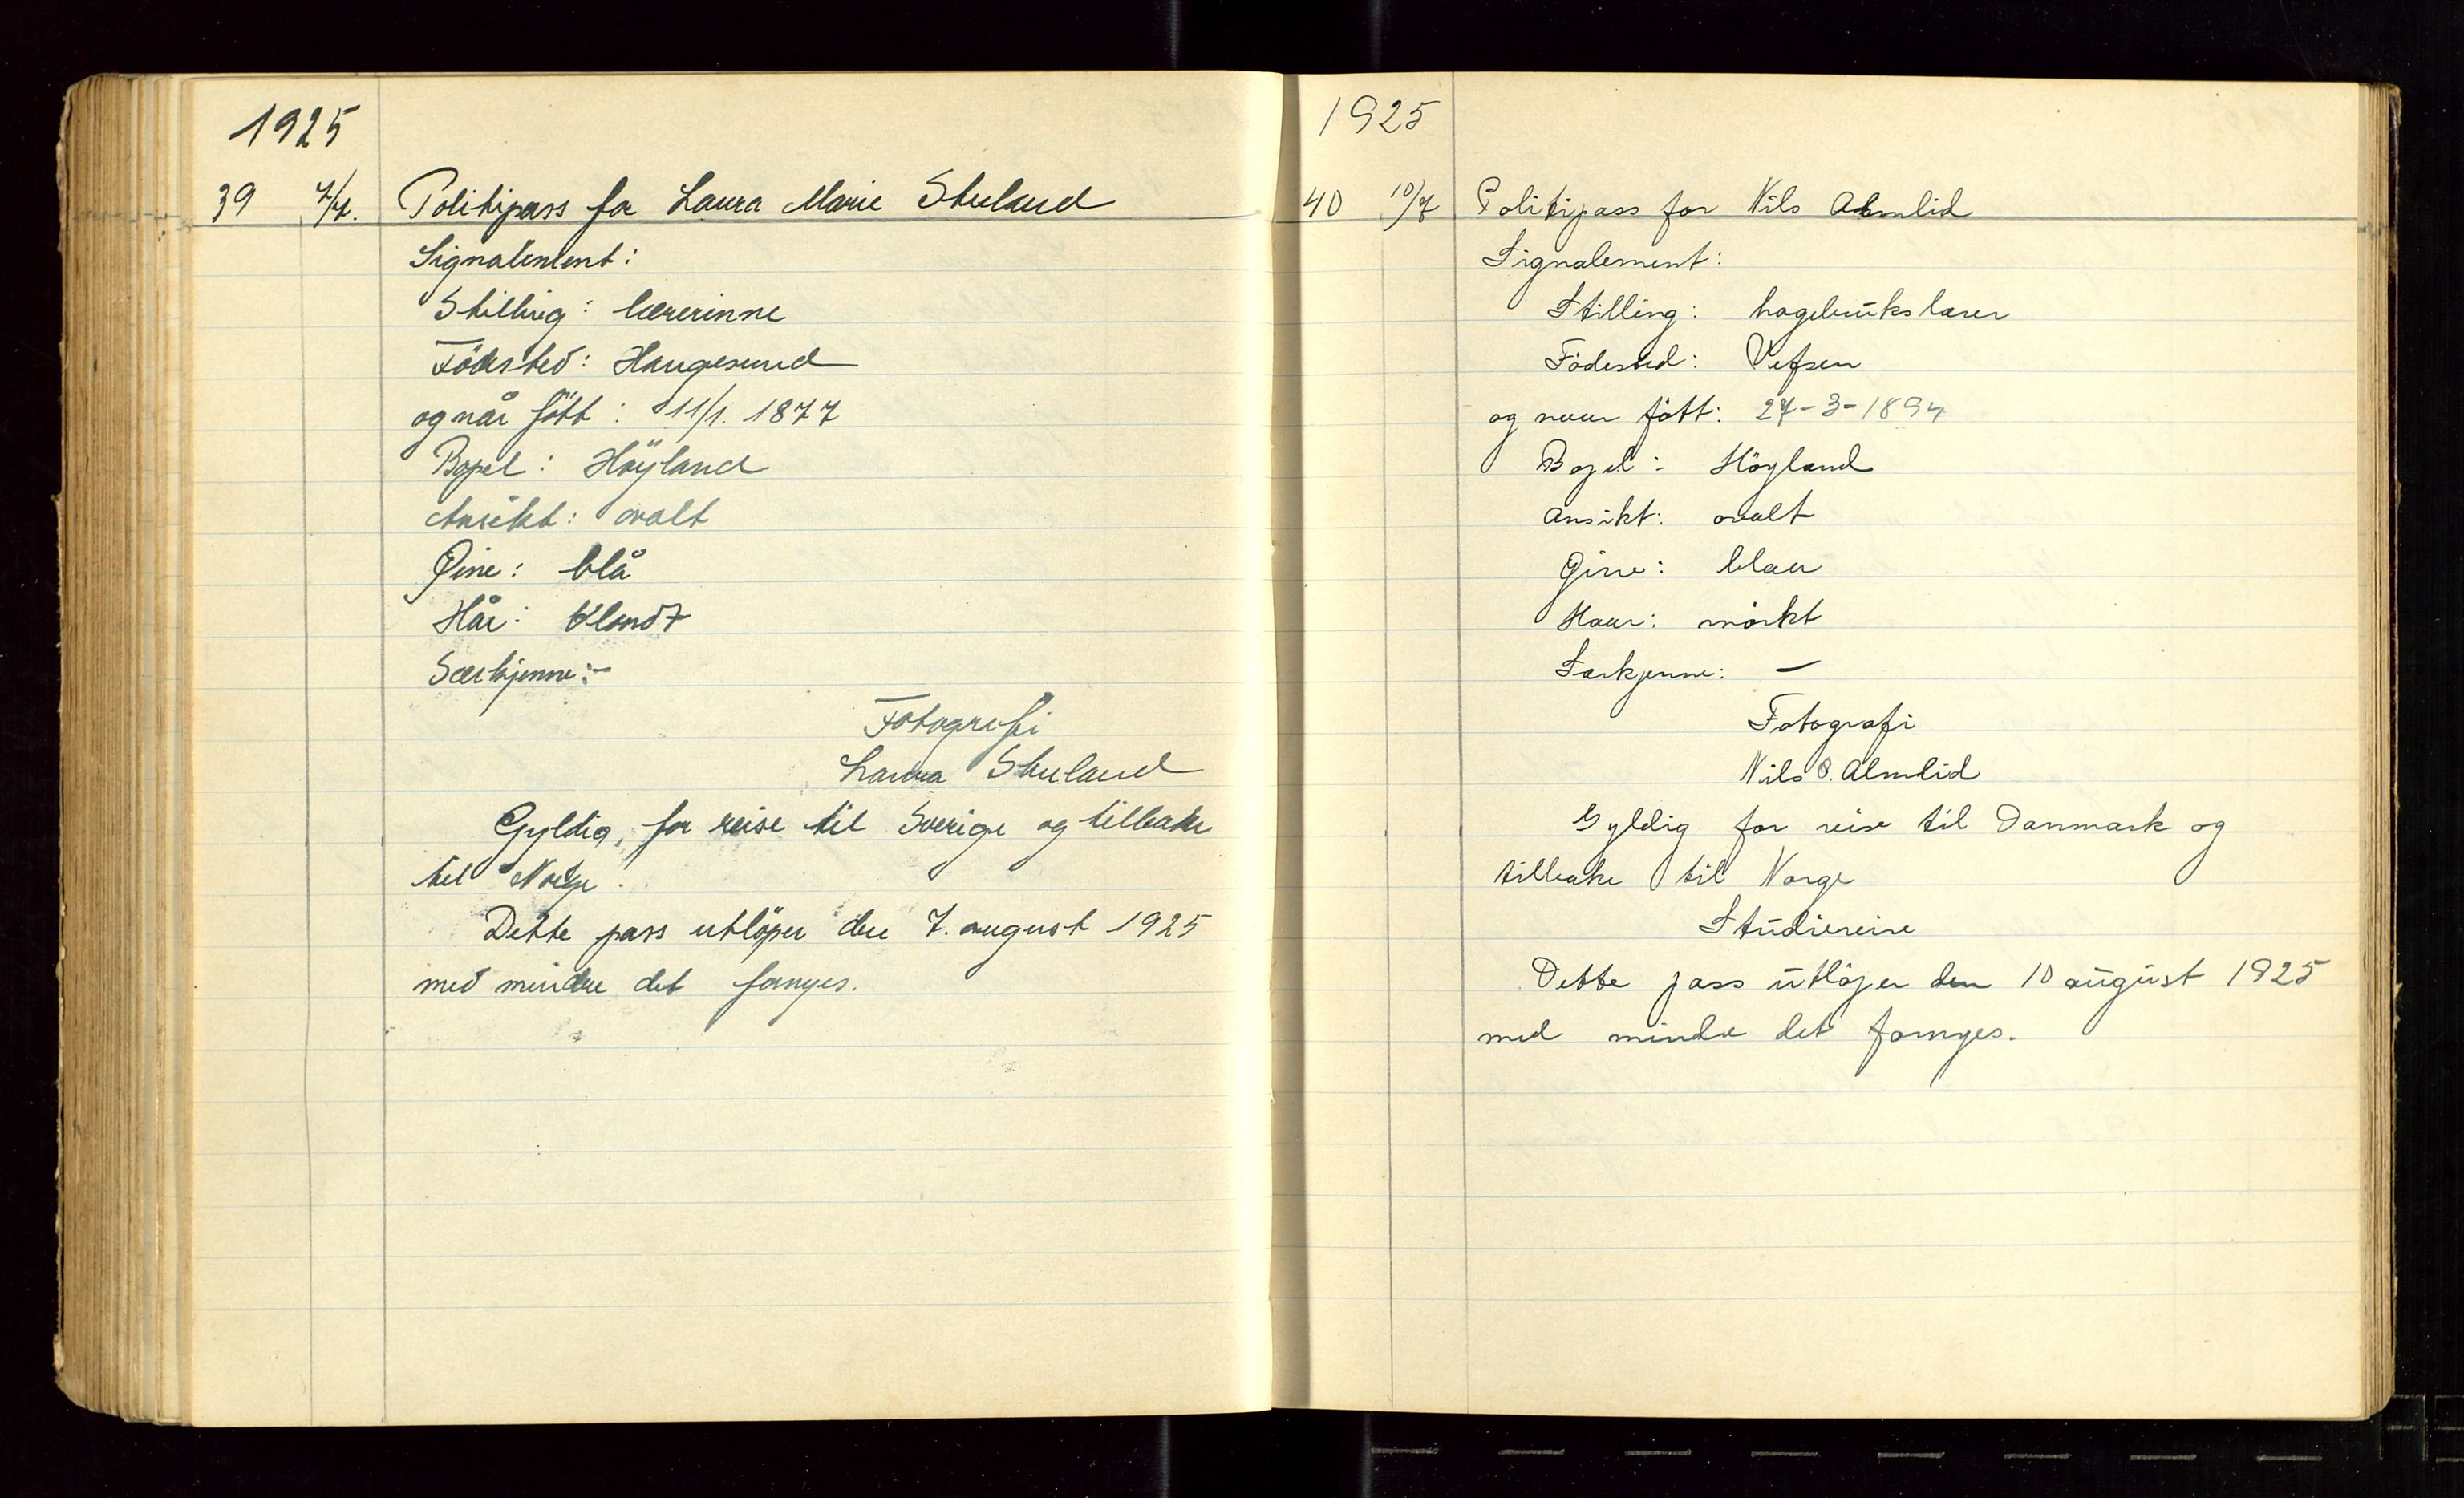 1925
39 7/7. Politipass for Laura Marie Skeland
Signalement:
Stilling: lærerinne
Födested: Haugesund
og når fött: 11/1. 1877
Bopel: Höyland
Ansikt: ovalt
Øine: blå
Hår: blondt
Særkjenne: -
Fotografi
Laura
Gyldig, for reise til Sverige og tilbake
til Norge.
Dette pass utlöper den 7. august 1925
med mindre det fornyes.
1925
40 10/7 Politipass for Nils Almlid
Signalement:
Stilling: hagebrukslærer
Födested: Vefsen
og naar fött: 27-3-1894
Bopel: Höyland
Ansikt: ovalt
Öine: blaa
Haar: mörkt
Særkjenne: -
Fotografi
Nils O. Almlid
Gyldig for reise til Danmark og
tilbake til Norge
Studiereise
Dette pass utlöper den 10 august 1925
med mindre det fornyes.